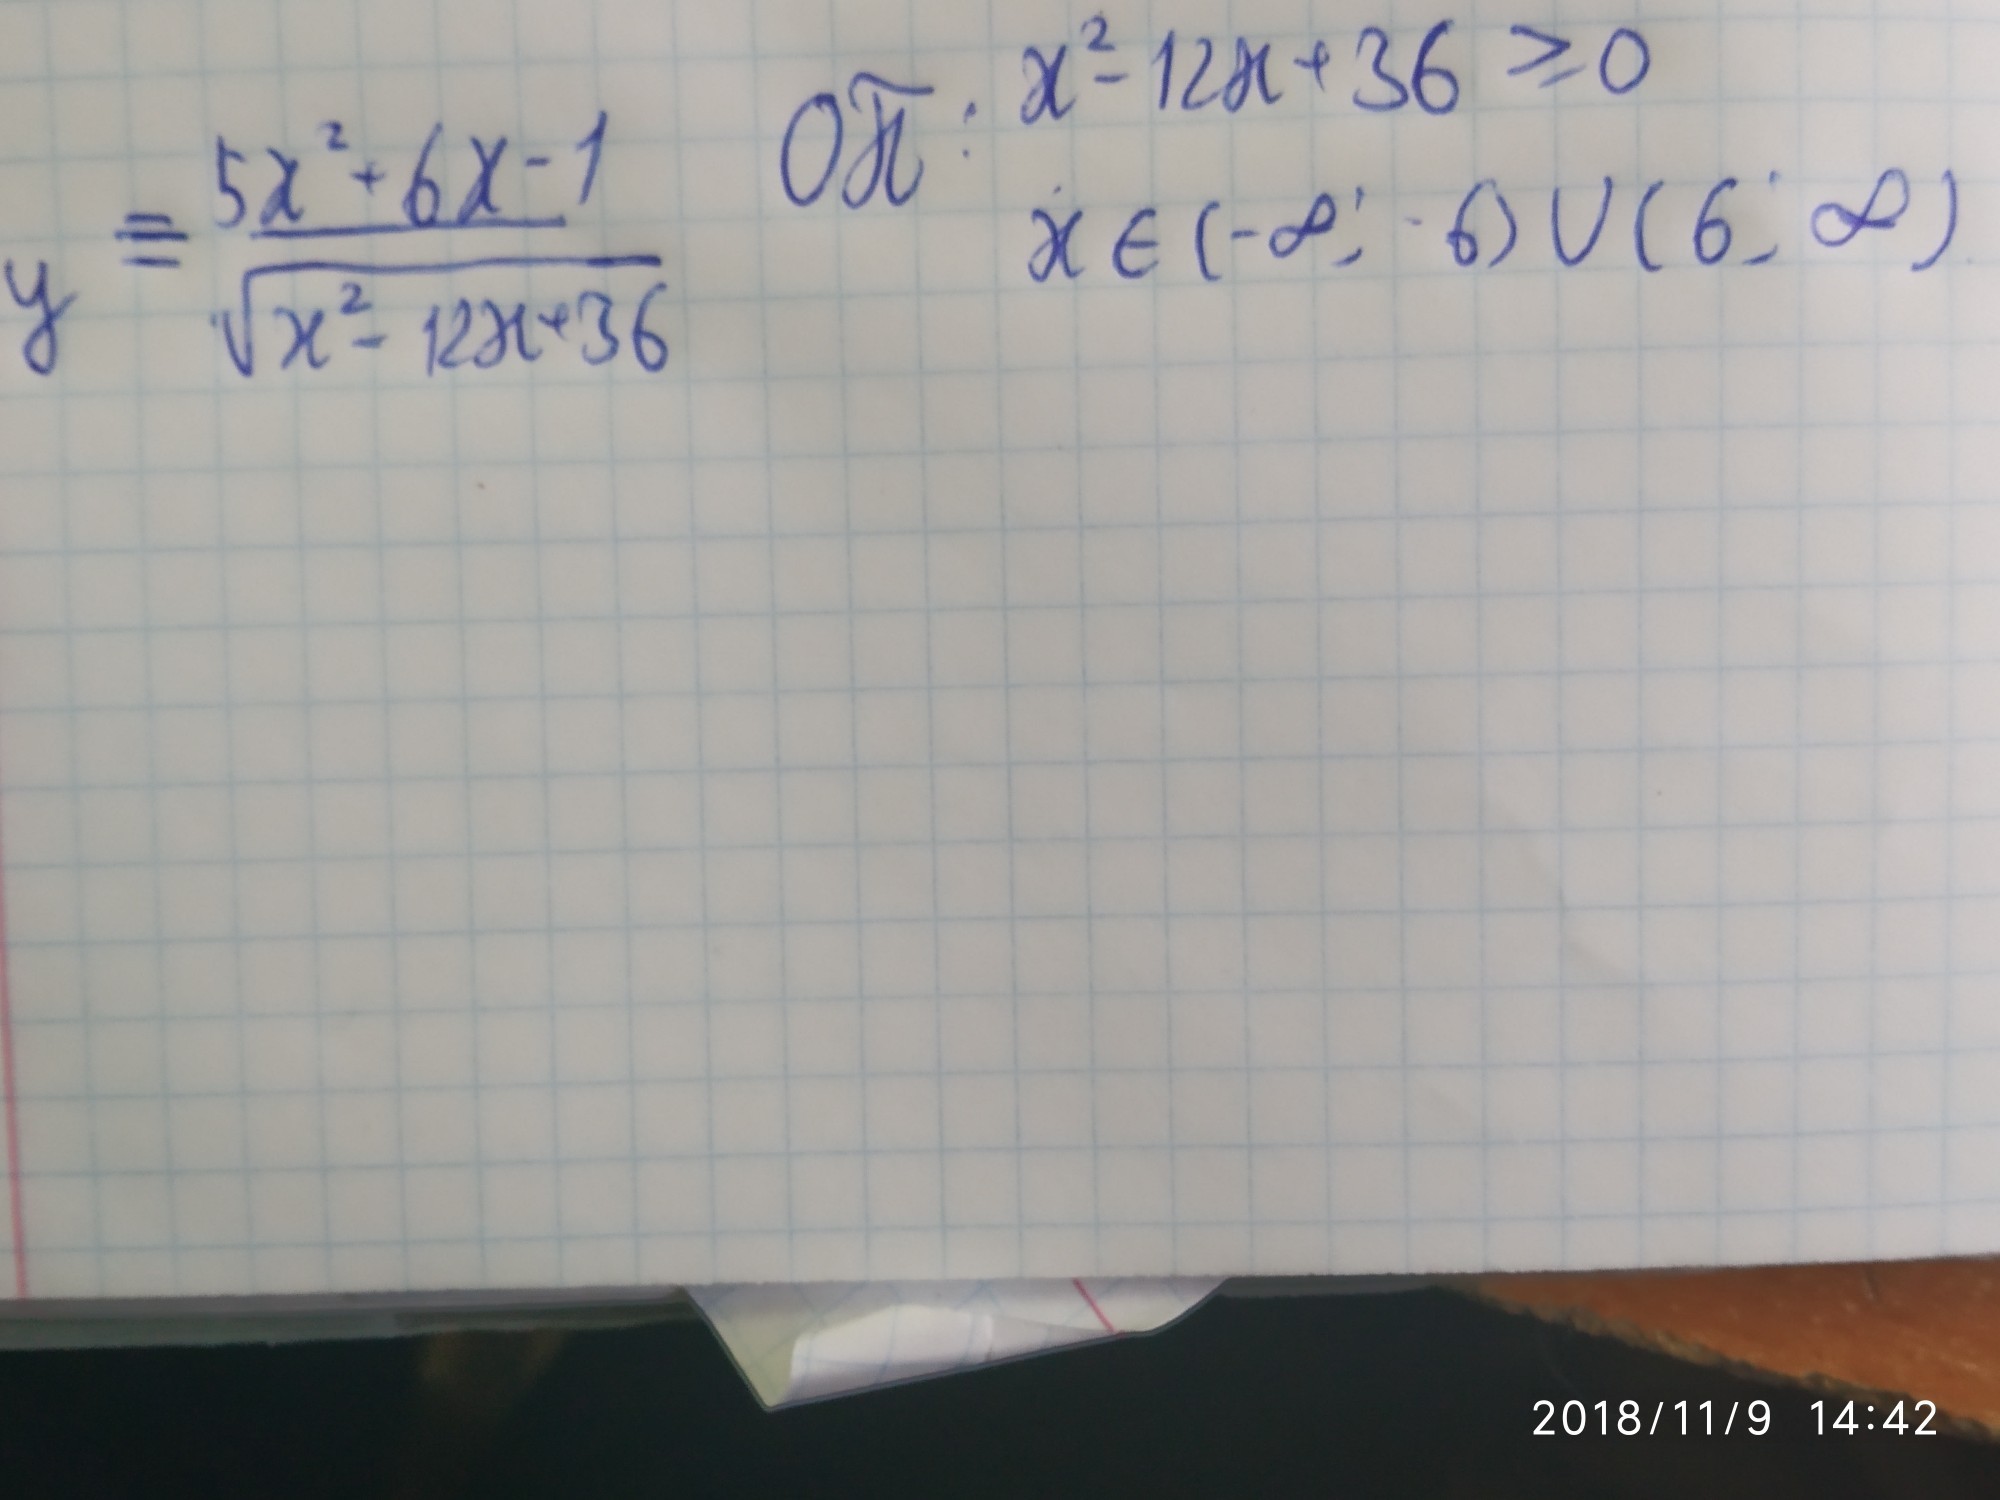 y = (5x² + 6x - 1) / √(x² - 12x + 36)
ОП: x² - 12x + 36 ⩾ 0
x ∈ (-∞; -6) ∪ (6; ∞)
2018/11/9 14:42